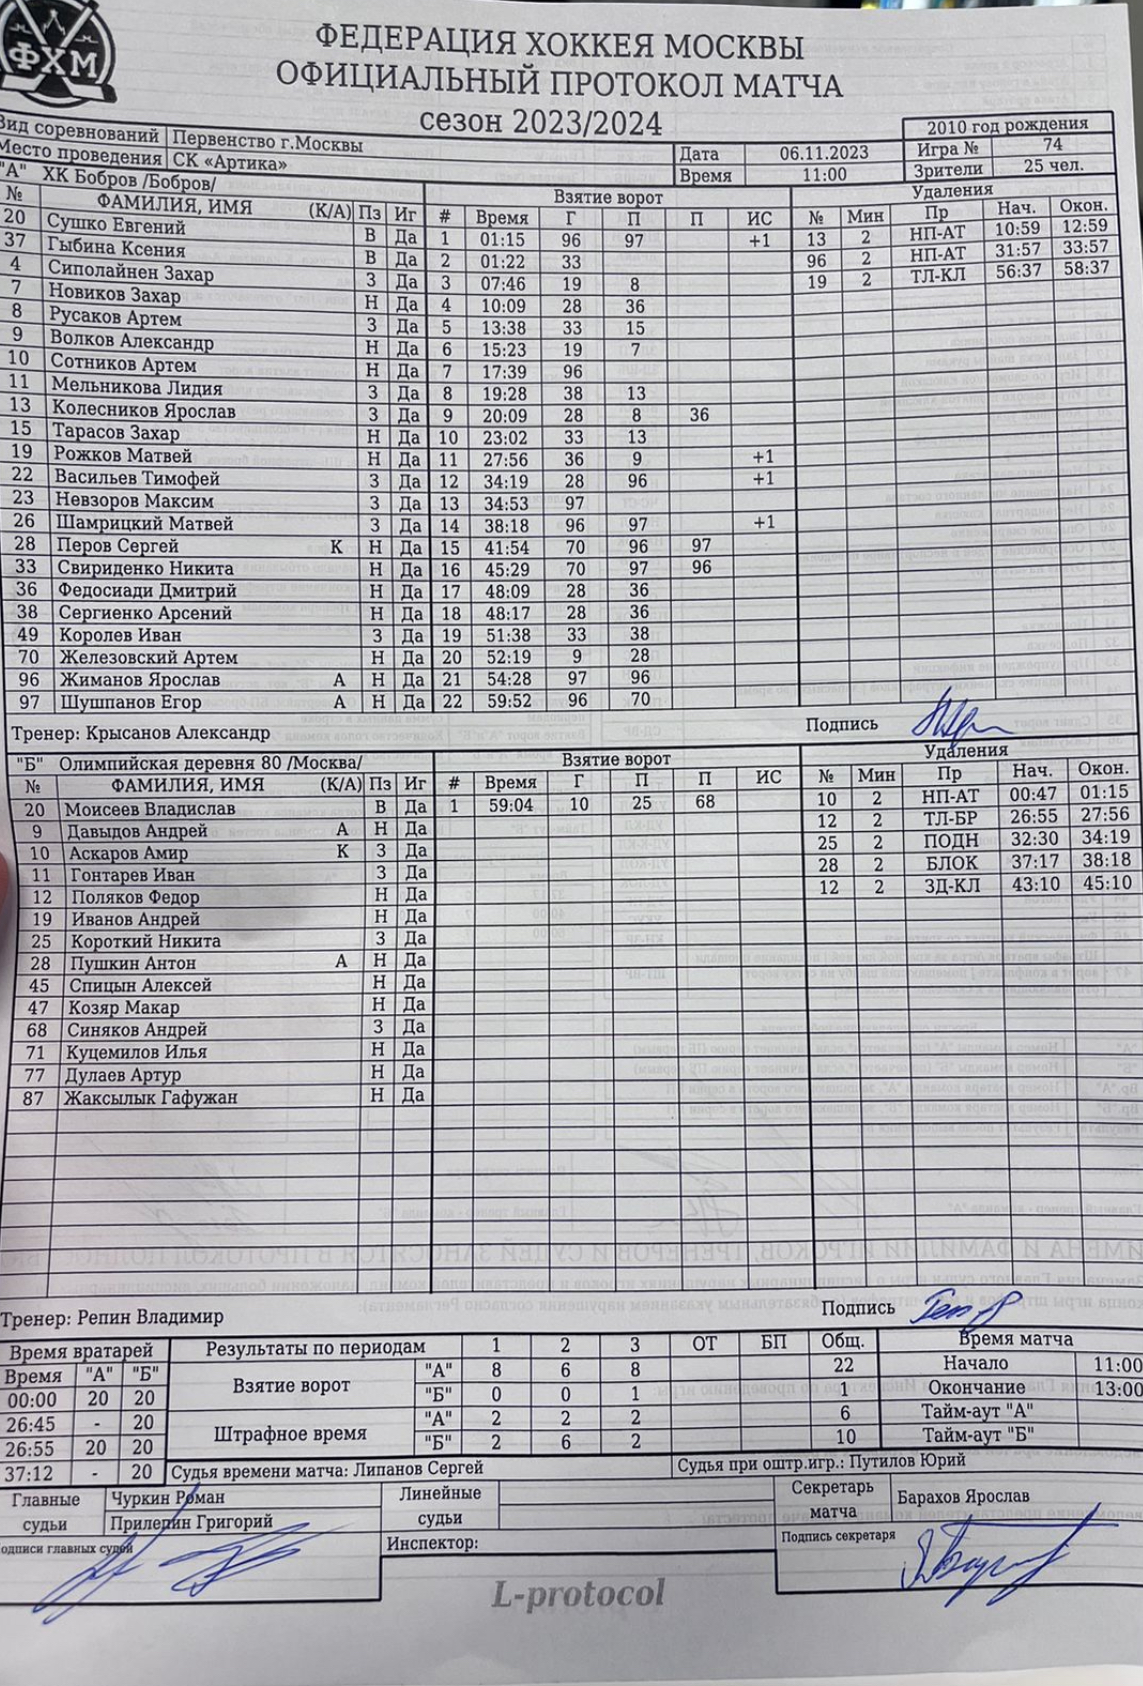 ФХМ
ФЕДЕРАЦИЯ ХОККЕЯ МОСКВЫ
ОФИЦИАЛЬНЫЙ ПРОТОКОЛ МАТЧА
сезон 2023/2024
2010 год рождения
Вид соревнований Первенство г.Москвы Дата 06.11.2023 Игра № 74
Место проведения СК «Артика» Время 11:00 Зрители 25 чел.
"А" ХК Бобров /Бобров/ Взятие ворот Удаления
№ ФАМИЛИЯ, ИМЯ (К/А) Пз Иг # Время Г П П ИС № Мин Пр Нач. Окон.
20 Сушко Евгений В Да 1 01:15 96 97 +1 13 2 НП-АТ 10:59 12:59
37 Гыбина Ксения В Да 2 01:22 33 96 2 НП-АТ 31:57 33:57
4 Сиполайнен Захар З Да 3 07:46 19 8 19 2 ТЛ-КЛ 56:37 58:37
7 Новиков Захар Н Да 4 10:09 28 36
8 Русаков Артем З Да 5 13:38 33 15
9 Волков Александр Н Да 6 15:23 19 7
10 Сотников Артем Н Да 7 17:39 96
11 Мельникова Лидия З Да 8 19:28 38 13
13 Колесников Ярослав З Да 9 20:09 28 8 36
15 Тарасов Захар Н Да 10 23:02 33 13
19 Рожков Матвей Н Да 11 27:56 36 9 +1
22 Васильев Тимофей З Да 12 34:19 28 96 +1
23 Невзоров Максим З Да 13 34:53 97
26 Шамрицкий Матвей З Да 14 38:18 96 97 +1
28 Перов Сергей К Н Да 15 41:54 70 96 97
33 Свириденко Никита Н Да 16 45:29 70 97 96
36 Федосиади Дмитрий Н Да 17 48:09 28 36
38 Сергиенко Арсений Н Да 18 48:17 28 36
49 Королев Иван З Да 19 51:38 33 38
70 Железовский Артем Н Да 20 52:19 9 28
96 Жиманов Ярослав А Н Да 21 54:28 97 96
97 Шушпанов Егор А Н Да 22 59:52 96 70
Тренер: Крысанов Александр Подпись
"Б" Олимпийская деревня 80 /Москва/ Взятие ворот Удаления
№ ФАМИЛИЯ, ИМЯ (К/А) Пз Иг # Время Г П П ИС № Мин Пр Нач. Окон.
20 Моисеев Владислав В Да 1 59:04 10 25 68 10 2 НП-АТ 00:47 01:15
9 Давыдов Андрей А Н Да 12 2 ТЛ-БР 26:55 27:56
10 Аскаров Амир К З Да 25 2 ПОДН 32:30 34:19
11 Гонтарев Иван З Да 28 2 БЛОК 37:17 38:18
12 Поляков Федор Н Да 12 2 ЗД-КЛ 43:10 45:10
19 Иванов Андрей Н Да
25 Короткий Никита З Да
28 Пушкин Антон А Н Да
45 Спицын Алексей Н Да
47 Козяр Макар Н Да
68 Синяков Андрей З Да
71 Куцемилов Илья Н Да
77 Дулаев Артур Н Да
87 Жаксылык Гафужан Н Да
Тренер: Репин Владимир Подпись
Время вратарей Результаты по периодам 1 2 3 ОТ БП Общ. Время матча
Время "А" "Б" Взятие ворот "А" 8 6 8 22 Начало 11:00
00:00 20 20 "Б" 0 0 1 1 Окончание 13:00
26:45 - 20 Штрафное время "А" 2 2 2 6 Тайм-аут "А"
26:55 20 20 "Б" 2 6 2 10 Тайм-аут "Б"
37:12 - 20 Судья времени матча: Липанов Сергей Судья при оштр.игр.: Путилов Юрий
Главные судьи Чуркин Роман Линейные судьи Секретарь матча Барахов Ярослав
Прилепин Григорий
Подписи главных судей Инспектор: Подпись секретаря
L-protocol